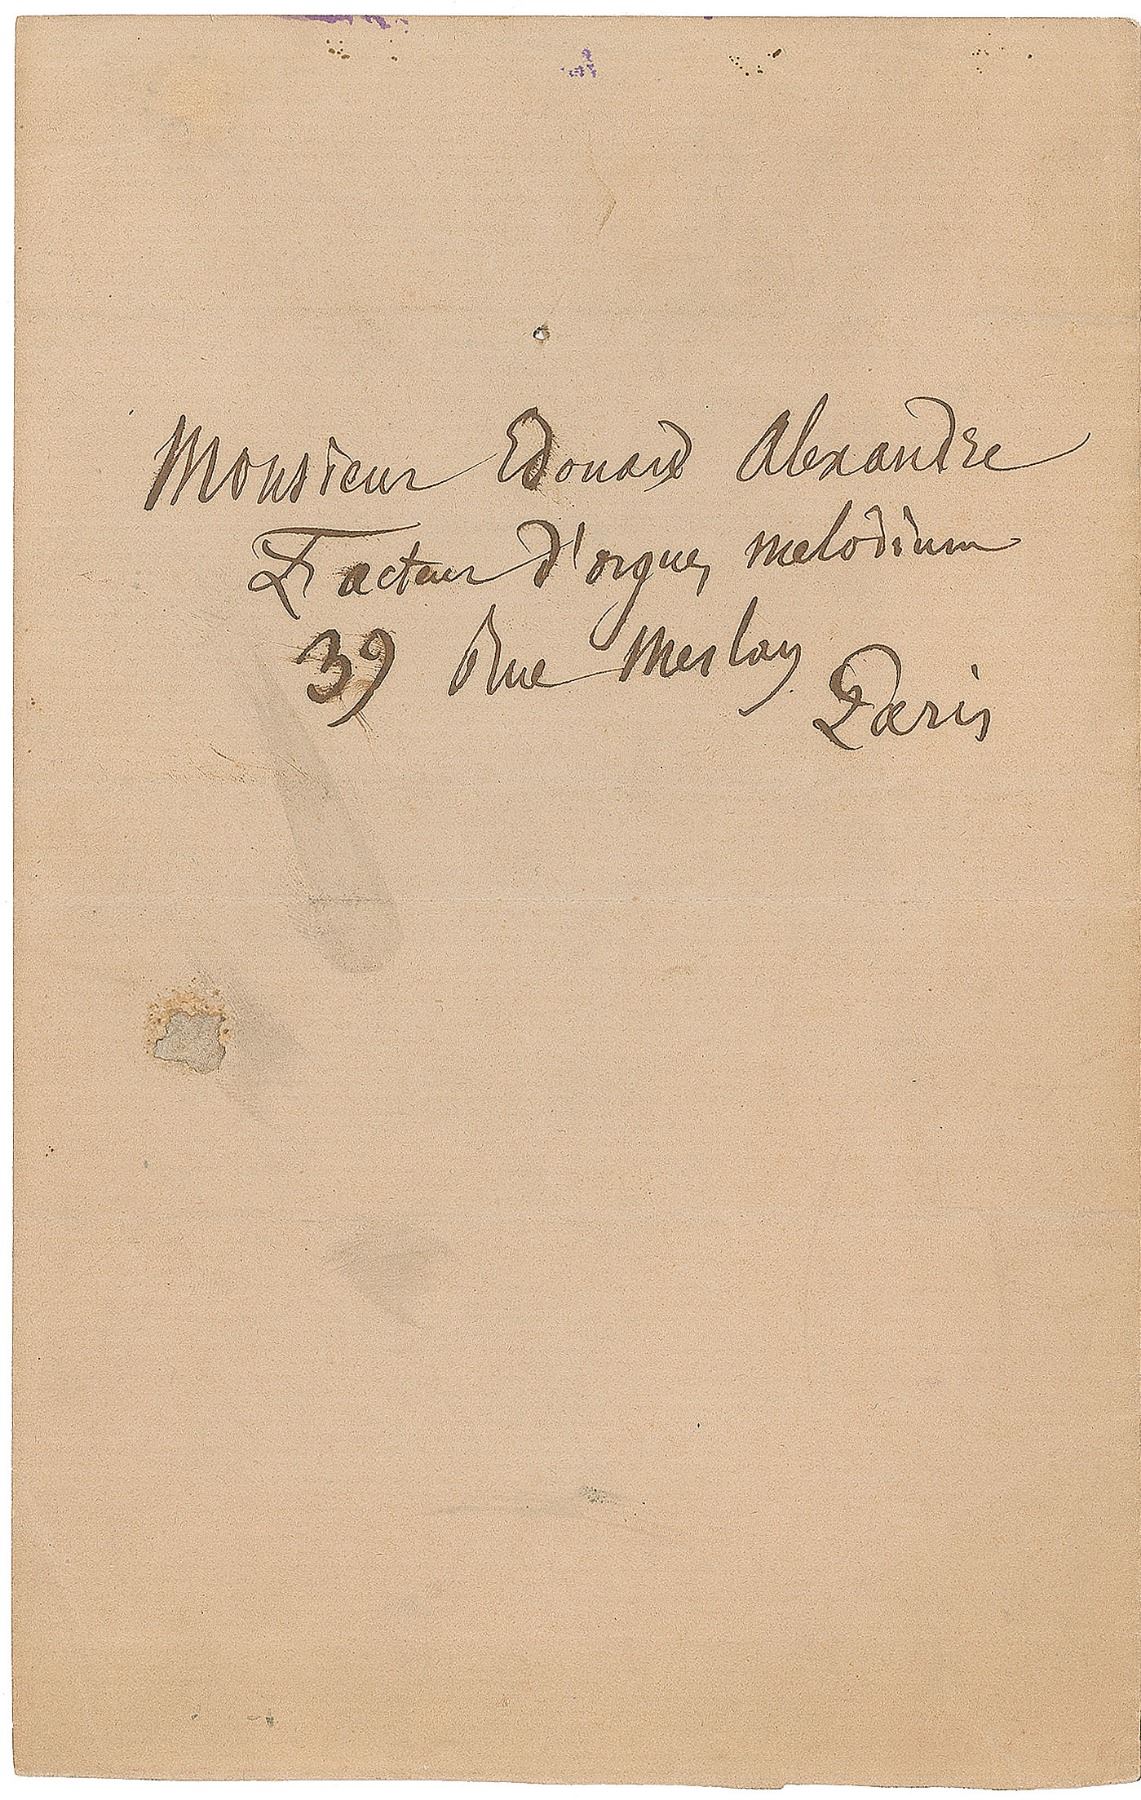 Monsieur Edouard Alexandre
Facteur d'orgues melodium
39 Rue Meslay
Paris